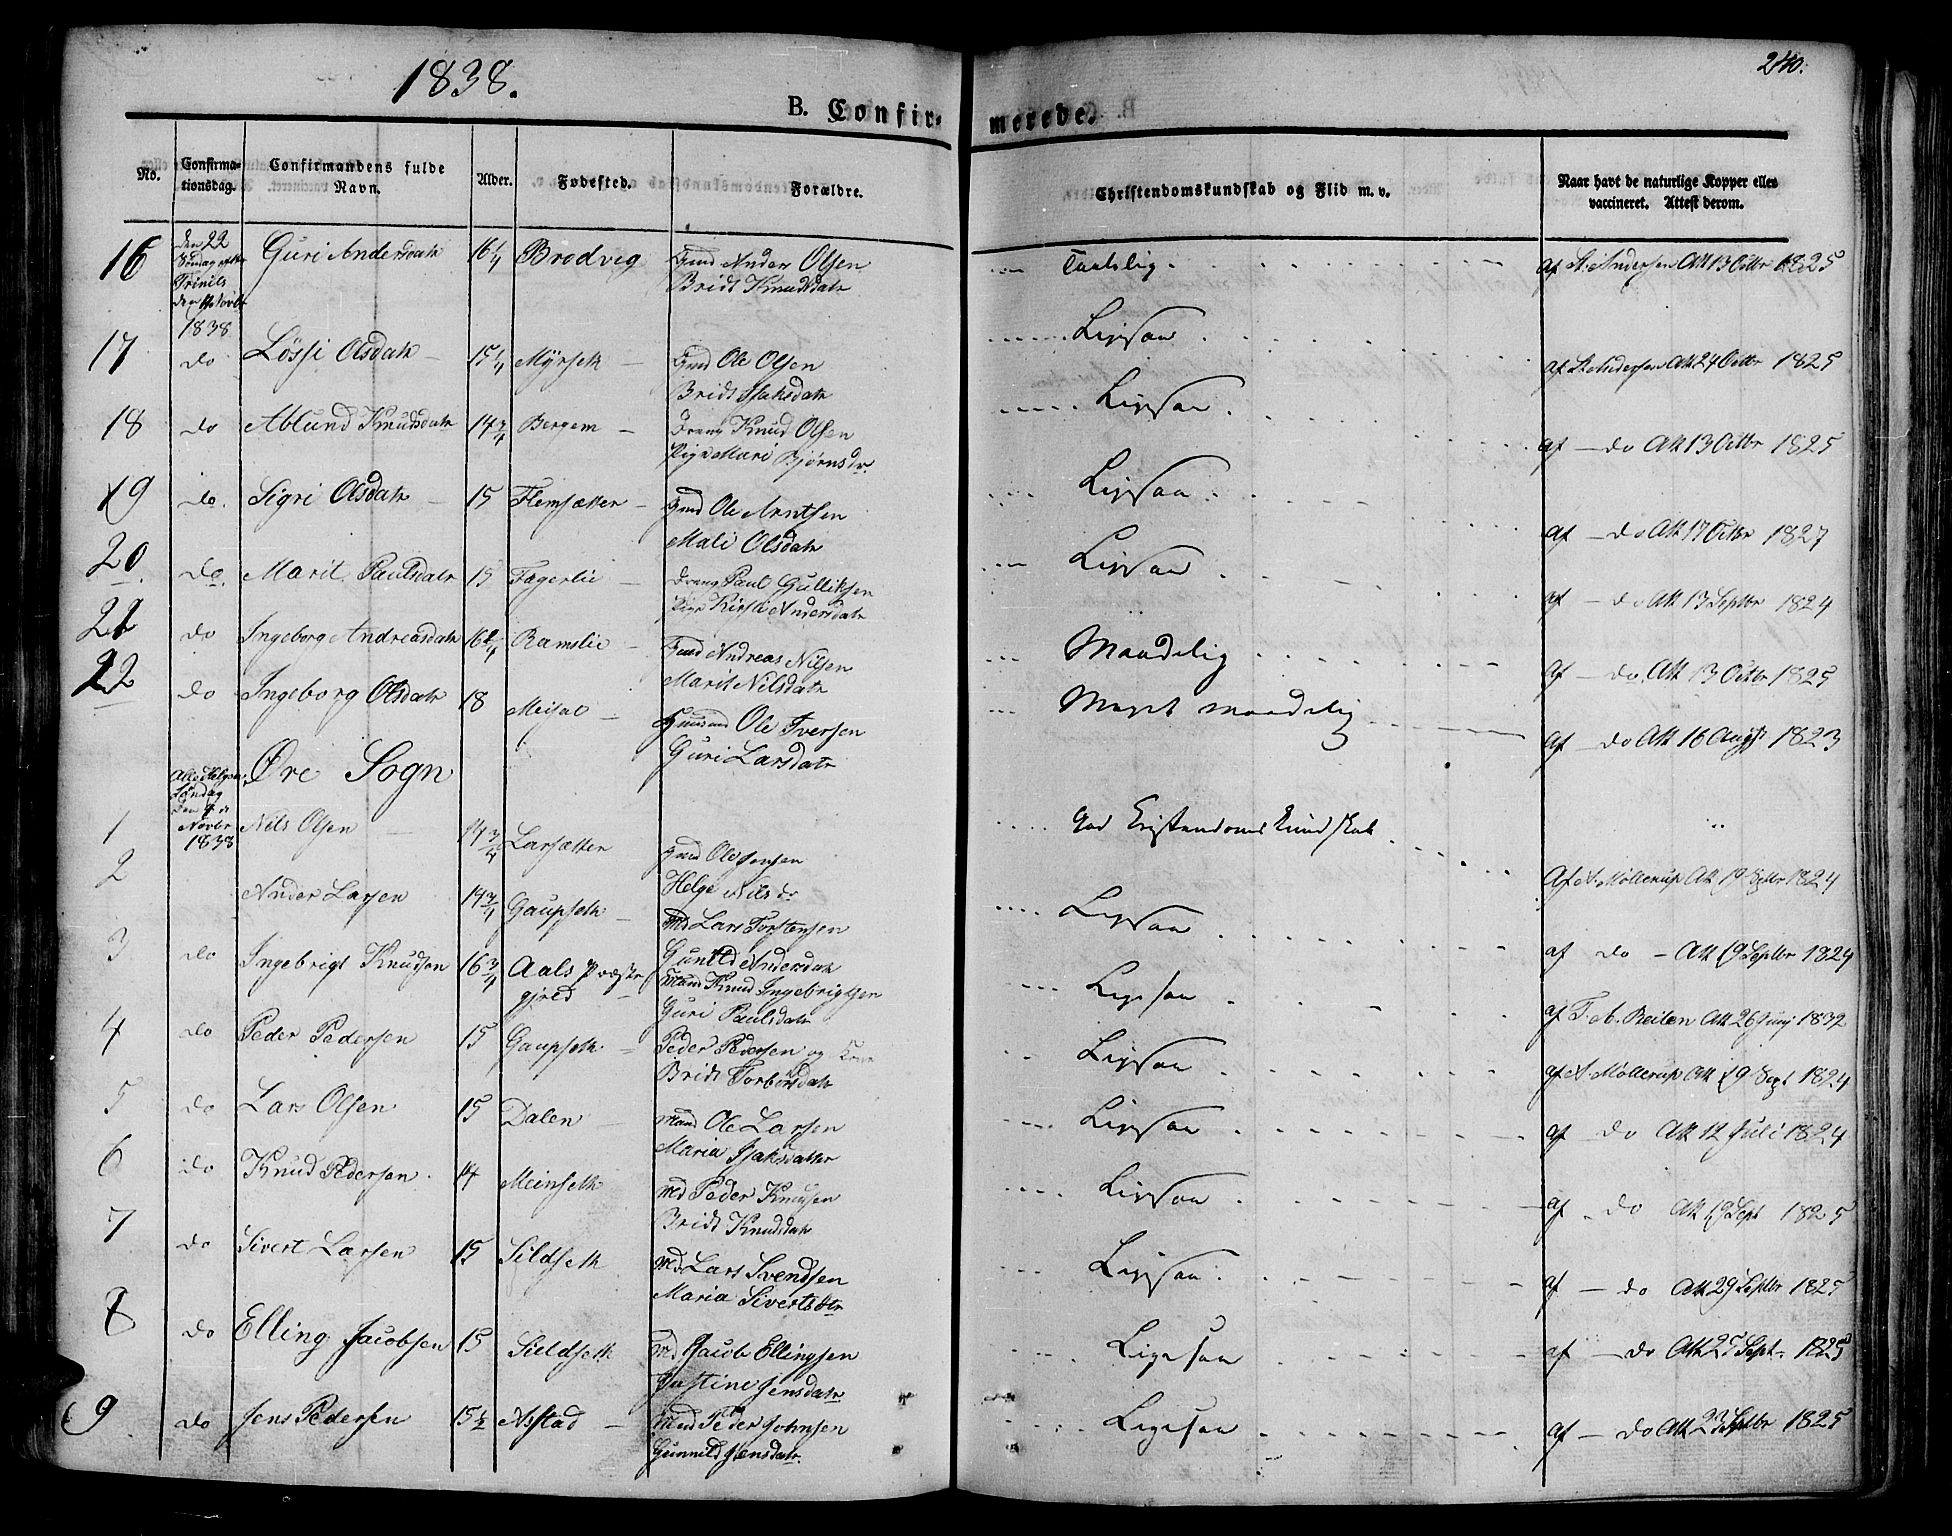 1838.
240.
B. Confirmerede.
No. Confirmationsdag. Confirmandens fulde Navn. Alder. Fødested. Forældre. Christendomskundskab og Flid m. v. Naar havt de naturlige Kopper eller vaccineret. Attest derom.
16 den 22 Søndag efter Trinits den 11 Novbr 1838 Guri Andersdatr 16 1/4 Brodvig Gmd Anders Olsen Taalelig af St. Andersen Att 13 Octbr 1825
Bridt Knudsdatr
17 do Løssi Olsdatr 15 1/4 Myrseth Gmd Ole Olsen Ligesaa af St. Andersen Att 24 Octbr 1825
Bridt Isaksdatr
18 do Ablund Knudsdatr 14 3/4 Bergem Dreng Knud Olsen Ligesaa af do Att 13 Octbr 1825
Pige Mari Bjørnsdr.
19 do. Sigri Olsdatr 15 Flemsætter Gmd Ole Arntsen Ligesaa af do Att 17 Octbr 1827
Mali Olsdatr
20. do. Marit Paulsdatr 15 Fagerlie Dreng Paul Gulliksen Ligesaa af do Att 13 Septbr 1824
Pige Kirsti Andersdatr
21 do Ingeborg Andreasdatr 16 1/4 Ramslie Gmd Andreas Nilsen Maadelig af do Att 13 Octbr 1825
Marit Nilsdatr
22 do Ingeborg Olsdatr 18 Meisal Huusmd Ole Iversen Meget maadelig af do Att 16 Augst 1823
Guri Larsdatr
Øre Sogn
1 Alle Helgens Søndag den 4de Novbr 1838 Nils Olsen 14 3/4 Larsætter Gmd Ole Jensen God Cristendoms Kundskab Af A. Møllerup Att 19 Septbr 1824
Helge Nilsdr
2 Ander Larsen 14 3/4 Gaupseth Md Lars Torstensen Ligesaa af do Att 19 Septbr 1824
Gunild Andersdatr
3 do Ingebrigt Knudsen 16 3/4 Aals Præstegjeld Mand Knud Ingebrigtsen Ligesaa af T. A. Beilen Att 26 Junj 1832
Guri Paulsdatr
4 do Peder Pedersen 15 Gaupseth Peder Pedersen og Kone Ligesaa af A. Møllerup Att 19 Sept 1824
Bridt Torborsdatr
5 do Lars Olsen 15 Dalen Mand Ole Larsen Ligesaa af do Att 12 Juli 1824
Maria Isaksdatter
6 do Knud Pedersen 14 Meinseth Md Peder Knudsen Ligesaa af do Att 19 Sept 1825
Bridt Knudsdatr
7 do Sivert Larsen 15 Sildseth Md Lars Svendsen Ligesaa af do Att 29 Septbr 1825
Maria Sivertsdtr
8 do Elling Jacobsen 15 Sieldseth Md Jacob Ellingsen Ligesaa af do Att 25 Sept. 1825
Justine Jensdatr
9 do Jens Pedersen 15 1/2 Asstad Mand Peder Johnsen Ligesaa af do Att 23 Septbr 1825
Gunnild Jensdatr.